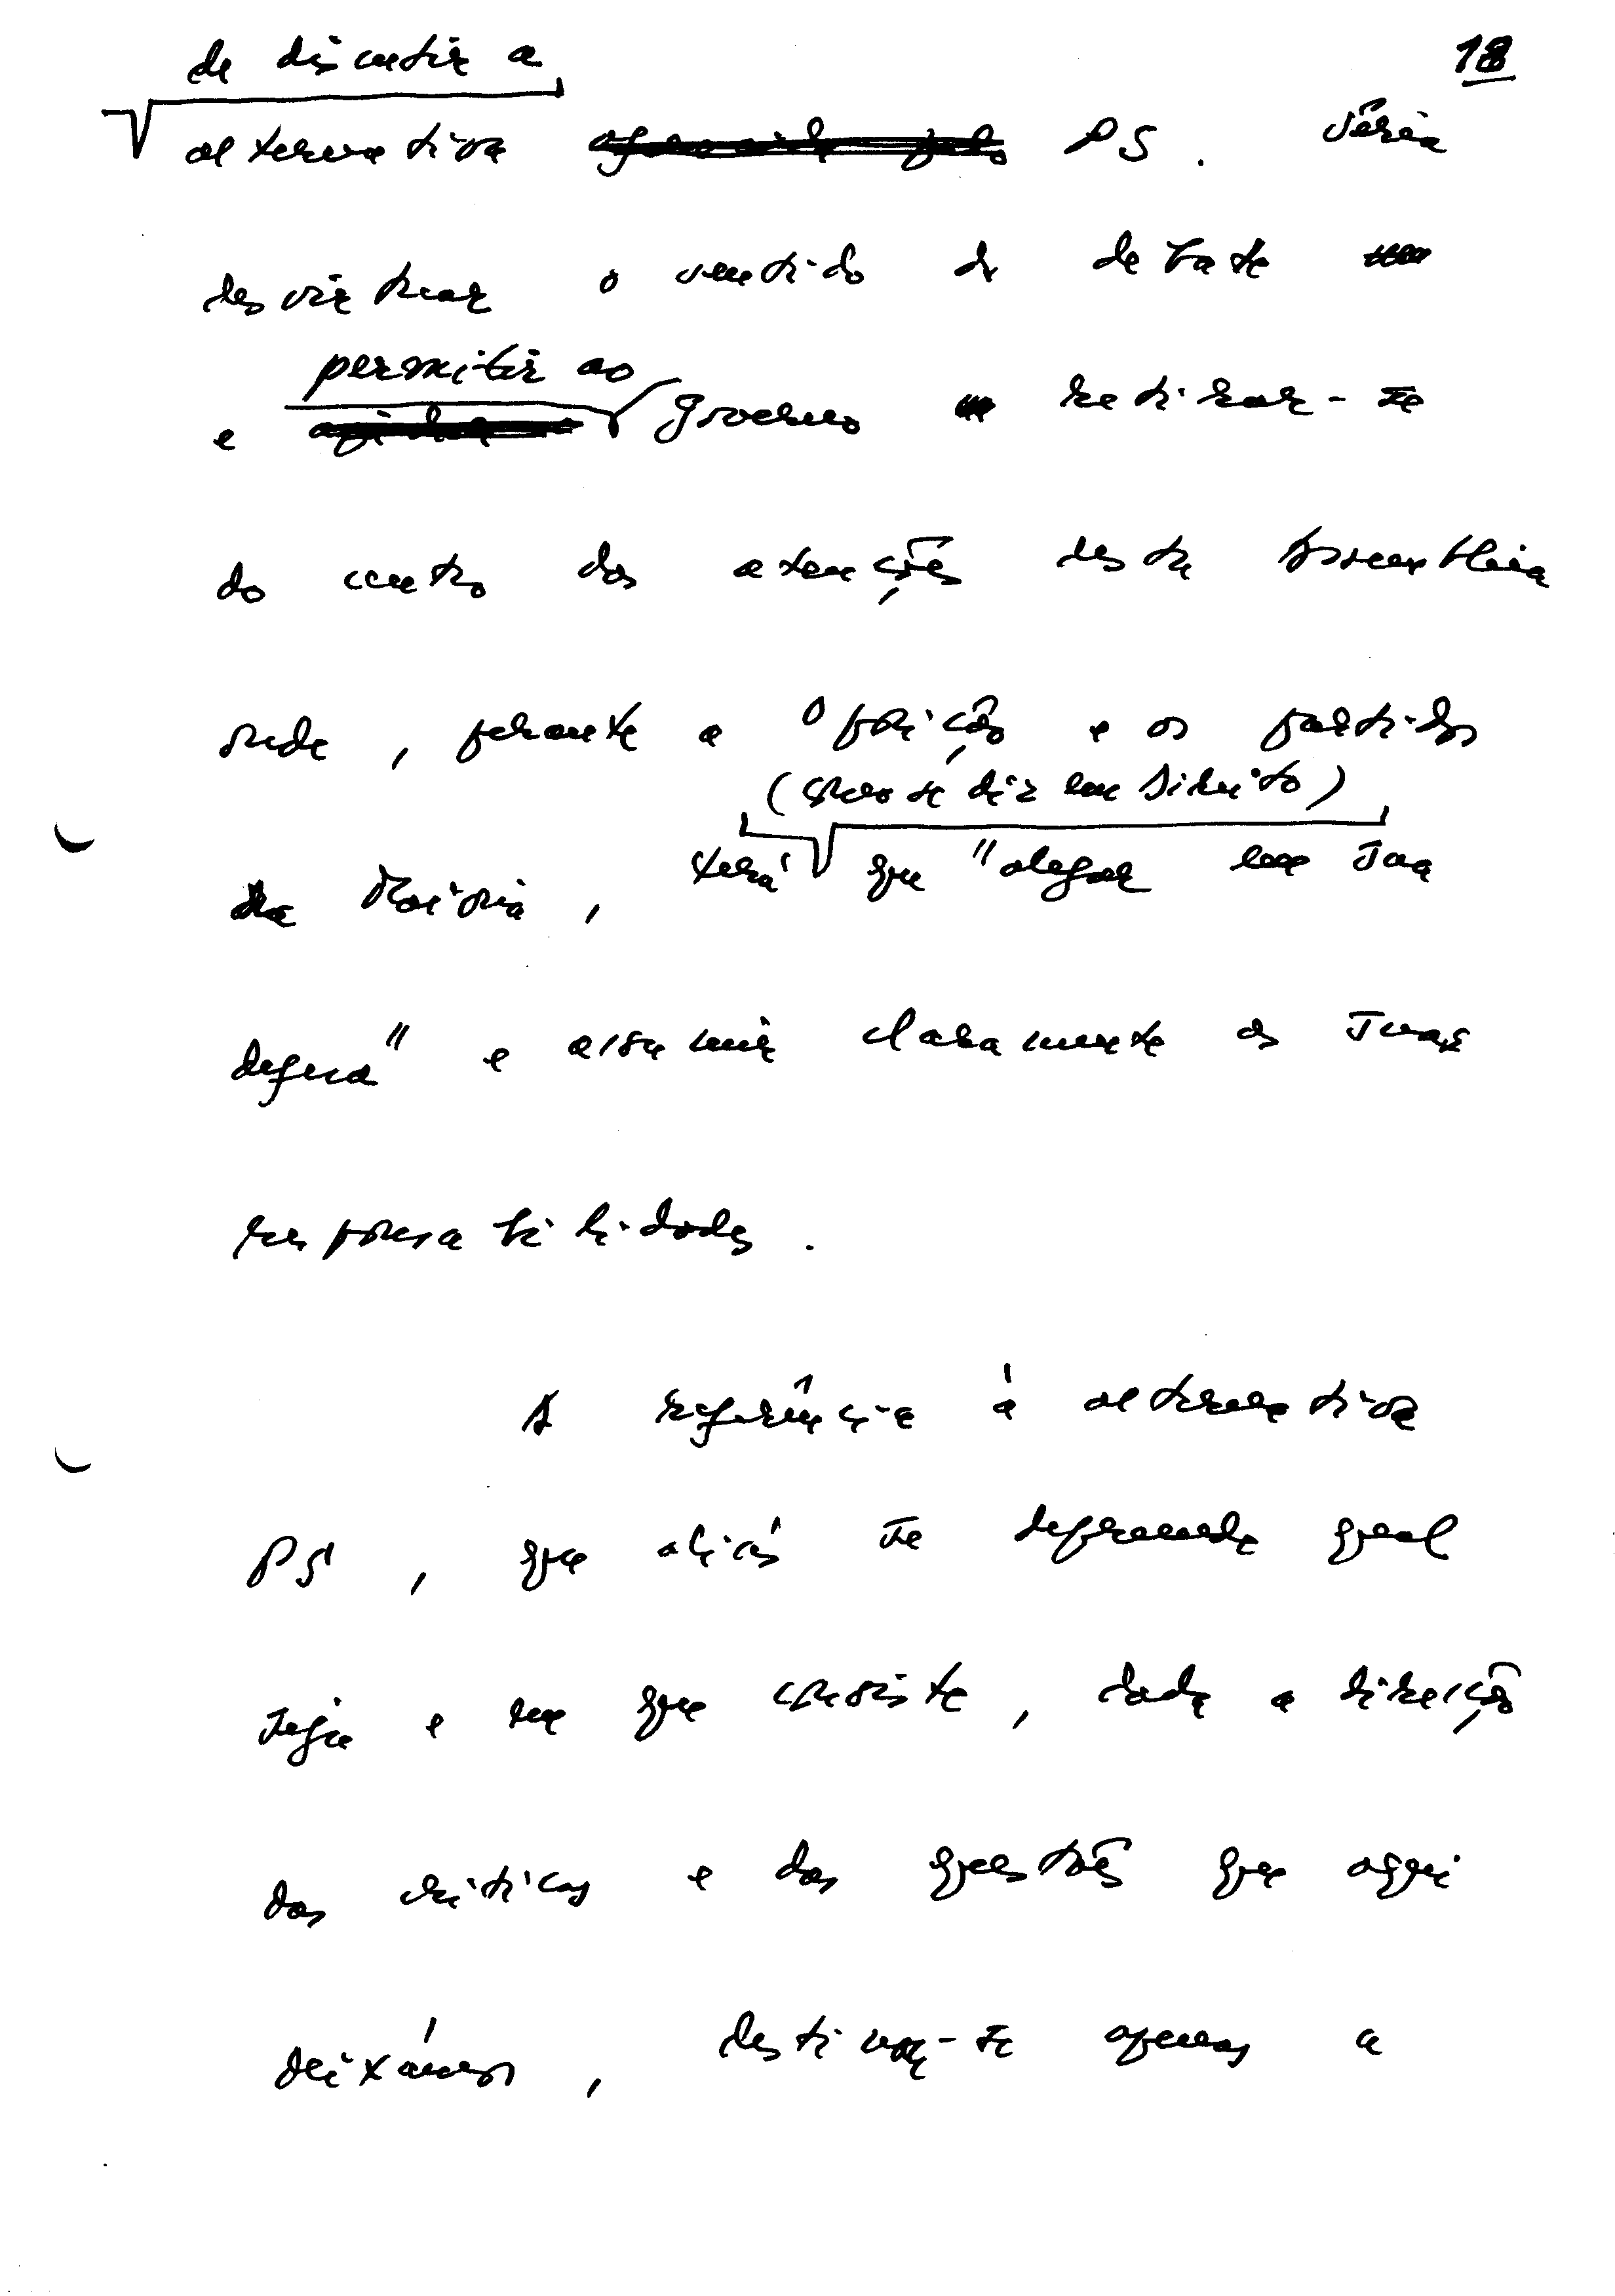 18
de discutir a
alternativa PS. Seria
desvirtuar o sentido do debate
permitir ao
e Governo retirar-se
do centro das atenções desta Assembleia
onde, perante a Oposição e os partidos
(como se diz em Direito)
da Maioria, terá que "alegar em sua
defesa" e assumir claramente as suas
responsabilidades.
A referência à alternativa
PS, que aliás se depreende qual
seja e em que consiste, dada a direcção
das críticas e das questões que aqui
deixámos, destinar-se apenas a